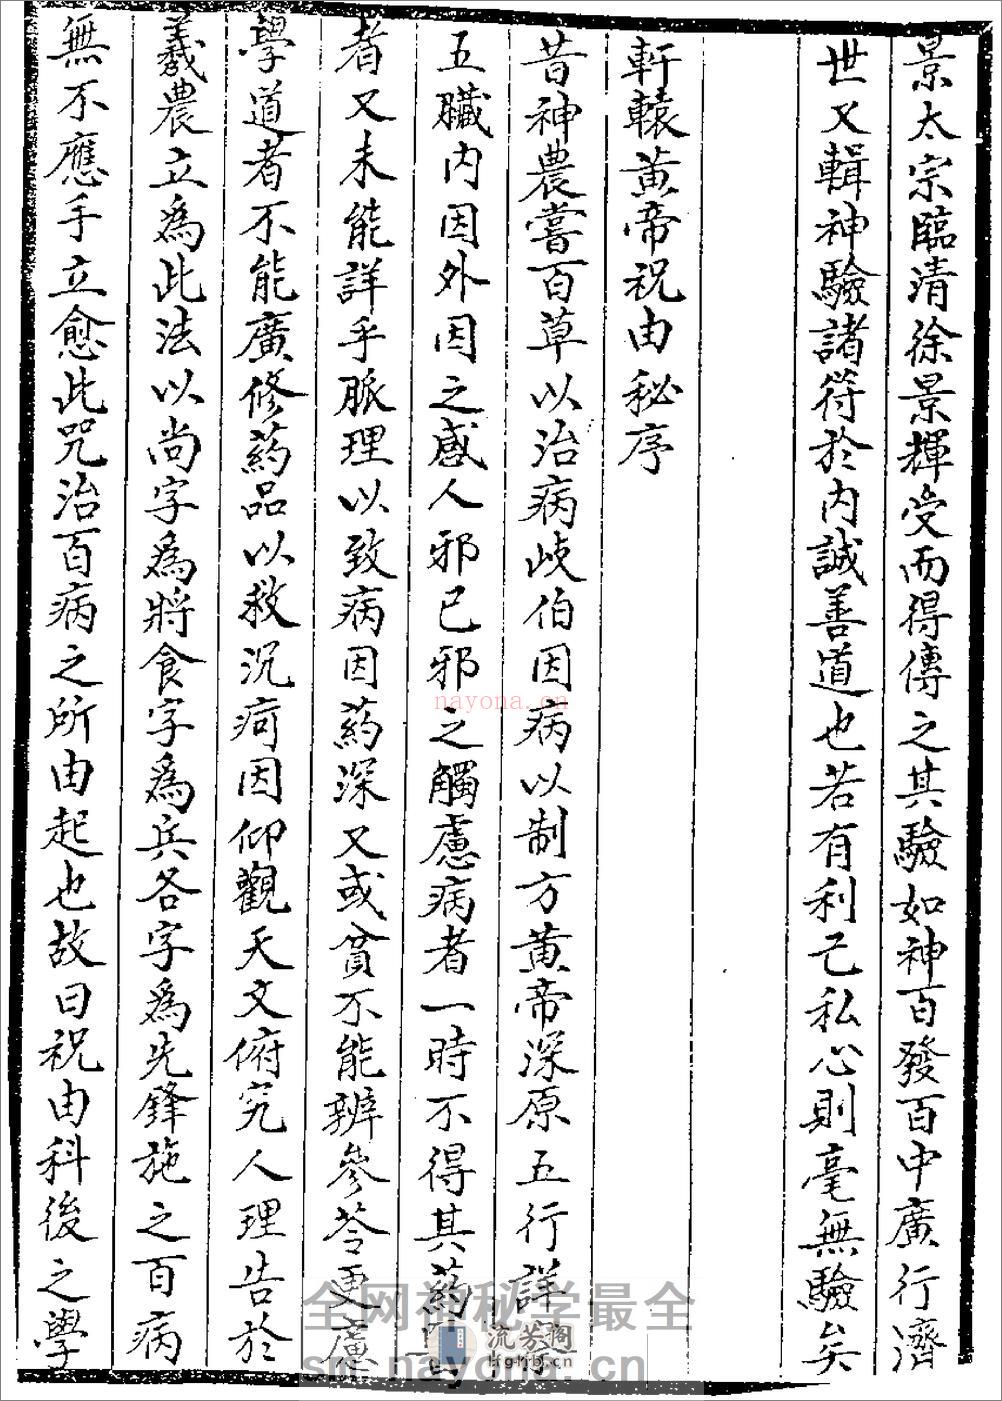 景太宗臨清徐景輝受而得傳之其驗如神百發百中廣行濟
世又輯神驗諸符於內誠善道也若有利己私心則毫無驗矣
軒轅黃帝祝由秘序
昔神農嘗百草以治病岐伯因病以制方黃帝深原五行詳
五臟內因外因之感人邪已邪之觸慮病者一時不得其葯
者又未能詳乎脈理以致病因葯深又或貧不能辨參苓更慮
學道者不能廣修葯品以救沉疴因仰觀天文俯究人理告於
羲農立為此法以尚字為將食字為兵各字為先鋒施之百病
無不應手立愈此咒治百病之所由起也故曰祝由科後之學
nayona.cn
全网神秘学最全
流芳阁
sm.nayona.cn